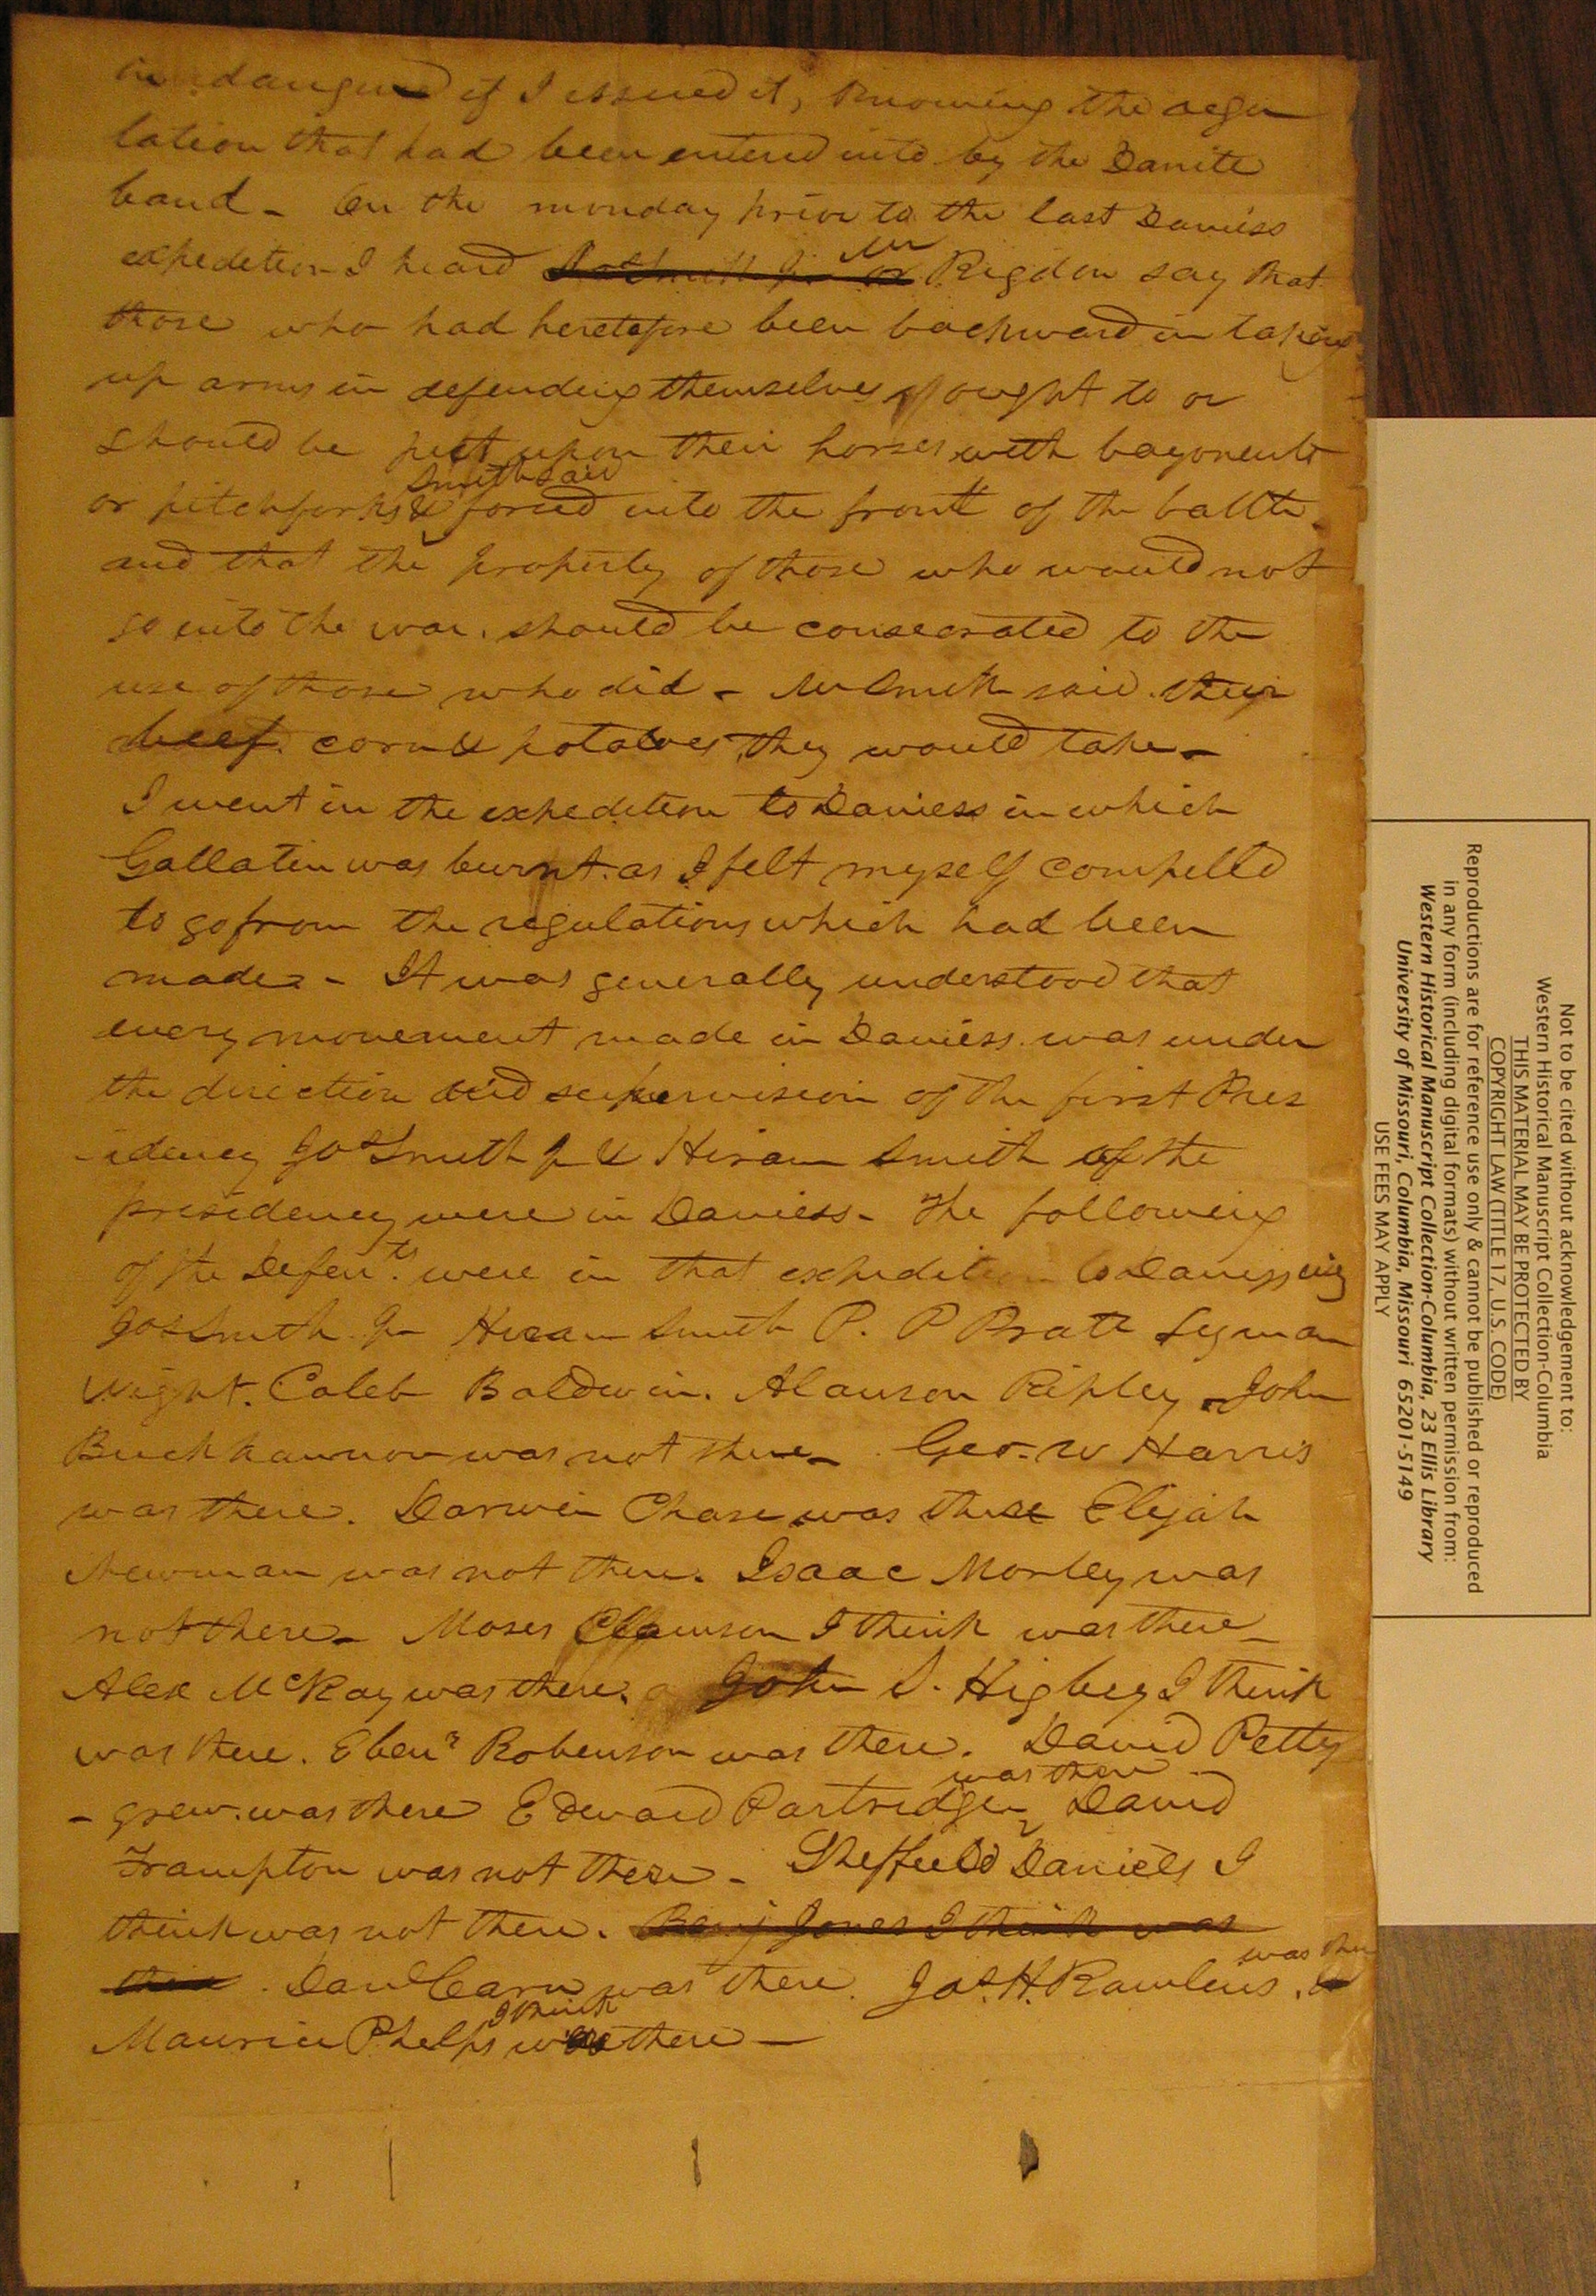 in dangured if I issued it, knowing the regu
lation that had been entered into by the Danite
band - On the monday prior to the last Daviess
expedition I heard Jos Smith Jr or Mr Rigdon say that
those who had heretofore been backward in taking
up arms in defending themselves ought to or
should be put upon their horses with bayonents
or pitchforks & Smith said forced into the front of the battle -
and that the property of those who would not
go into the war. should be consecrated to the
use of those who did - Mr Smith said. their
beef. corn & potatoes they would take -
I went in the expedition to Daviess in which
Gallatin was burnt. as I felt myself compelled
to go from the regulations which had been
made - It was generally understood that
every movement made in Daviess. was under
the direction and supervision of the first Pres
-idency Jos Smith Jr & Hiram Smith of the
presidency were in Daviess - The following
of the Defen.ts were in that expedition to Daviess viz
Jos Smith. Jr Hiram Smith P. P Pratt Lyman
Wight. Caleb Baldwin. Alanson Ripley - John
Buchhannon was not there - Geo. W Harris
was there. Darwin Chase was there Elijah
Newman was not there. Isaac Morley was
not there - Moses Clawson I think was there -
Alex McKay was there. John S. Higbey I think
was there. Ebenr Robenson was there. David Petty
- grew. was there Edward Partridge was there - David
Frampton was not there - Sheffield Daniels I
think was not there. Benj Jones I think was
there. Danl Carn was there. Jas. H. Rawlins was there. &
Maurice Phelps I think was there -
Not to be cited without acknowledgement to:
Western Historical Manuscript Collection-Columbia
THIS MATERIAL MAY BE PROTECTED BY
COPYRIGHT LAW (TITLE 17, U.S. CODE)
Reproductions are for reference use only & cannot be published or reproduced
in any form (including digital formats) without written permission from:
Western Historical Manuscript Collection-Columbia, 23 Ellis Library
University of Missouri, Columbia, Missouri 65201-5149
USE FEES MAY APPLY